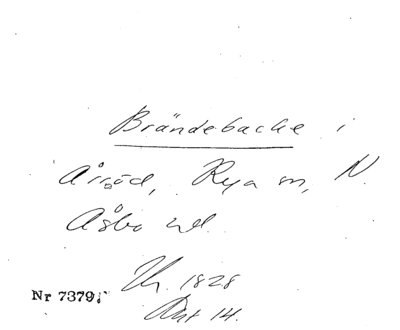 Brändebacke i
Årröd, Rya sn, N.
Åsbo hd
1828
Akt 14.
Nr 7379